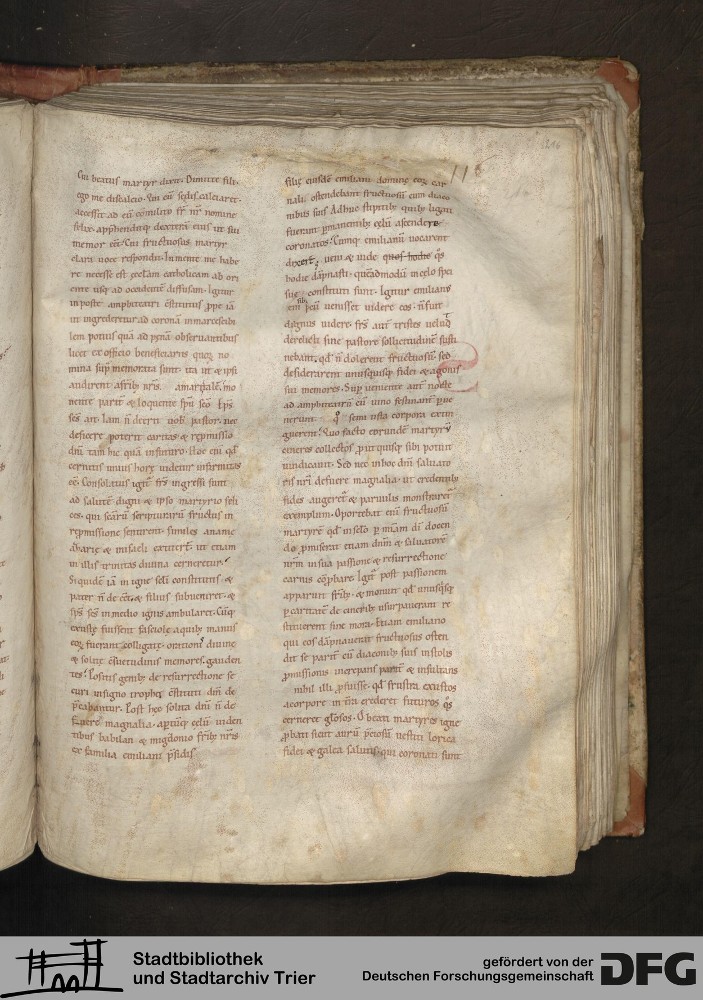 Cui beatus martyr dixit. Dimitte fili.
ego me discalcio. Cui cū sedis calciaret.
accessit ad eū comilito fr̄ nr̄ nomine
felix. appͥhenditq; dexterā eius ut sui
memor eēt. Cui fructuosus martyr
clara uoce respondit. In mente me habe
re necesse est ecc̄lam catholicam ab ori
ente usq; ad occidentē diffusam. Igitur
in poste amphiteatri cstitutus ꝓpe iā
ut ingrederetur ad coronā inmarcescibi
lem potius quā ad pęnā obseruantibus
licet ex officio beneficiariis quoꝝ no
mina supͣ memorata sunt. ita ut & ipsi
audirent & frīb; nr̄is.
nente parit̄ & loquente sp̄u sc̄o
ses ait. Iam n̄ deerit uob̄ pastor. nec
deficere poterit caritas & repmissio
dn̄i tam hic quā in futuro. Hoc eni qd̄
cernitis unius horę uidetur infirmitas
eē. Consolatus igit̄ frs̄ ingressi sunt
ad salutē. digni & in ipso martyrio feli
ces. qui scarū scripturarū fructus in
repmissione sentirent. similes ananie
azarię & misaeli extitert̄. ut etiam
in illis trinitas diuina cerneretur.
Siquidē iā in igne scl̄i constitutis &
pater n̄ deēt. & filius subueniret. &
sp̄s sc̄s in medio ignis ambularet. Cūq;
exustę fuissent fasciolę a quib; manus
eoꝝ fuerant colligatę. orationis diuinę
& solitę c̄suetudinis memores. gauden
tes. Positis genib; de resurrectione se
curi in signo trophei c̄stituti dn̄i de
p̄cabantur. Post hęc solita dn̄i n̄ de
fuere magnalia. aptūq; cęlū uiden
tibus babilan & migdonio frīb; nr̄is
ex familia emiliani p̄sidis
116
216
filię eiusdē emiliani dominę eoꝝ car
nali. ostendebant fructuosū cum diaco
nibus suis. Adhuc stipitib; quib; ligati
fuerant pmanentib; cęlū ascendere
coronatos. Cumq; emilianū uocarent
dixert̄. ueni & uide quos hodie q̄s
hodie dāpnasti. quēadmodū in cęlo spei
sue constituti sunt. Igitur emilianus
cū uenisset uidere eos. n̄ fuit
dignus uidere. Frs̄ aut̄ tristes uelud
derelicti sine pastore sollicitudinē susti
nebant. qd̄ n̄ dolerent fructuosū. sed
desiderarent unusquisq; fidei & agonis
sui memores. Supueniente aut̄ nocte
ad amphiteatrū cū uino festinant̄ pue
nerunt. q° semi usta corpora extin
guerent. Quo facto eorundē martyrū
cineres collectos prout quisq; sibi potuit
uindicauit. Sed nec in hoc dn̄i saluato
ris nr̄i defuere magnalia. ut credentib;
fides augeret̄ & paruulis monstraret̄
exemplum. Oportebat eni fructuosū
martyrē qd̄ in sclo p mīam di docen
do pmiserat etiam dn̄m & saluatorē
nr̄m in sua passione & resurrectione
carnis cphare. Igit̄ post passionem
apparuit frīb; & monuit qd̄ unusqsq;
p caritatē de cinerib; usurpauerant re
stituerent sine mora. Etiam emiliano
qui eos dāpnauerat fructuosus osten
dit se parit̄ cū diaconib; suis in stolis
pmissionis increpans parit̄ & insultans
nihil illi pfuisse. qd̄ frustra exustos
a corpore in tr̄a crederet futuros q̄s
cerneret gl̄osos. O beati martyres igne
pbati sicut aurū p̄ciosū uestiti lorica
fidei & galea salutis. qui coronati sunt
Stadtbibliothek
und Stadtarchiv Trier
gefördert von der
Deutschen Forschungsgemeinschaft
DFG